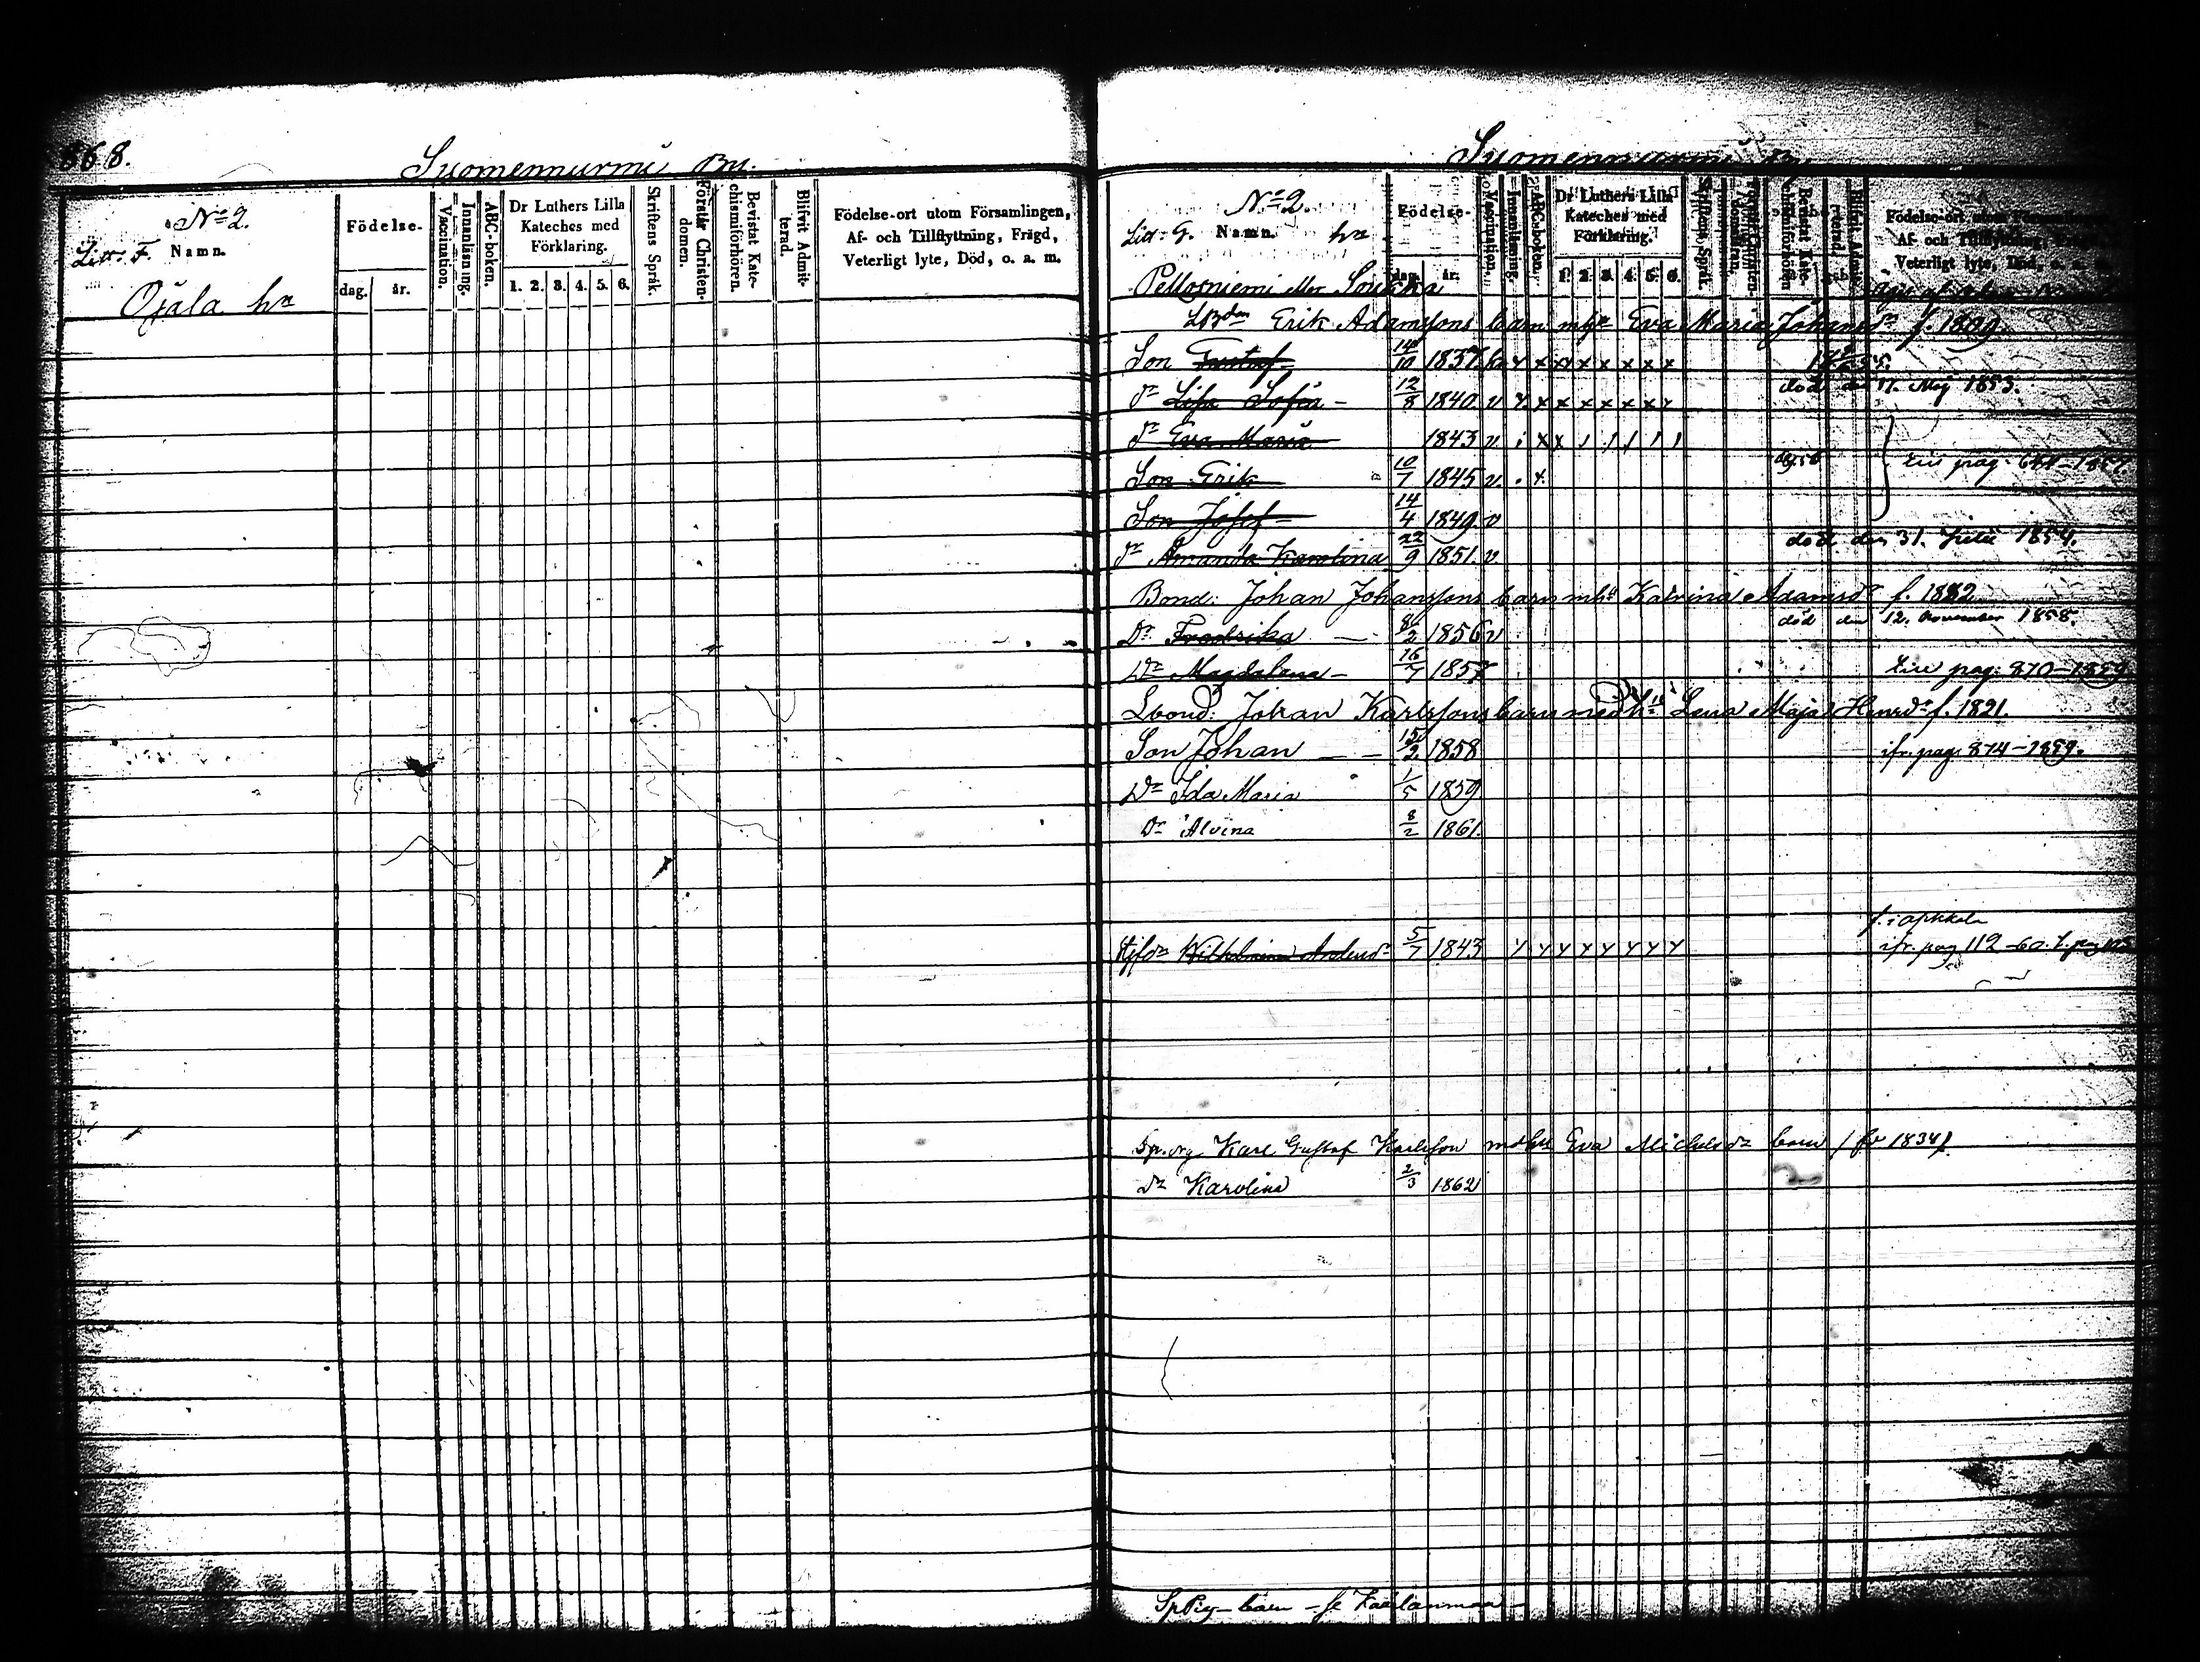 868.
Suomennurmi By.
No 2.
Litt: F. Namn.
Födelse-
dag. år.
Vaccination.
Innanläsning.
ABC-boken.
Dr Luthers Lilla Kateches med Förklaring.
1. 2. 3. 4. 5. 6.
Skriftens Språk.
Förstår Christendomen.
Bevistat Katechismiförhören.
Blifvit Admitterad.
Födelse-ort utom Församlingen,
Af- och Tillflyttning, Frägd,
Veterligt lyte, Död, o. a. m.
Ojala hn
Suomennurmi By.
No 2.
Litt: G. Namn. hn
Födelse-
dag. år.
Vaccination.
Innanläsning.
ABC-boken.
Dr Luthers Lilla Kateches med Förklaring.
1. 2. 3. 4. 5. 6.
Skriftens Språk.
Födelse-ort utom Församlingen,
Af- och Tillflyttning, Frägd,
Veterligt lyte, Död, o. a. m.
Pelloniemi eller Soukka
Erik Adamssons barn mhu Eva Maria Johansdr f. 1809.
Son Gustaf 14/10 1837
dr Lisa Sofia 12/8 1840. v död den 17. Maj 1853.
dr Eva Maria 1843 v
Son Erik 10/7 1845 v.
Son Josef 14/4 1849. v
dr Amanda Karolina 22/9 1851. v död den 31. Julii 1854.
Bond: Johan Johanssons barn mhu Katrina Adamsdr f. 1832
Dr Fredrika 8/2 1856 v död den 12. November 1858.
Dr Magdalena 16/7 1857 pag: 870-1859.
Lbond: Johan Karlssons barn med h Lena Maja Henrdr f. 1821.
Son Johan 15/2 1858 ifr. pag 874-1859.
Dr Ida Maria 1/5 1859
Dr Alvina 8/2 1861.
f. i
Wilhelmina Andersdr 5/7 1843 ifr. pag 112-60.
Karl Gustaf Karlsson mdhu Eva Michelsdr barn / fd 1834/
Dr Karolina 2/3 1862
barn